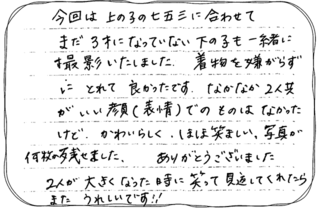 今回は上の子の七五三に合わせて
まだ3才になっていない下の子も一緒に
撮影いたしました。着物を嫌がらず
に とれて 良かったです。なかなか2人共
がいい顔(表情)でのものはなかった
けど、かわいらしく、ほほ笑ましい、写真が
何枚か残せました。 ありがとうございました
2人が大きくなった時に笑って見返してくれたら
また うれしいです!!